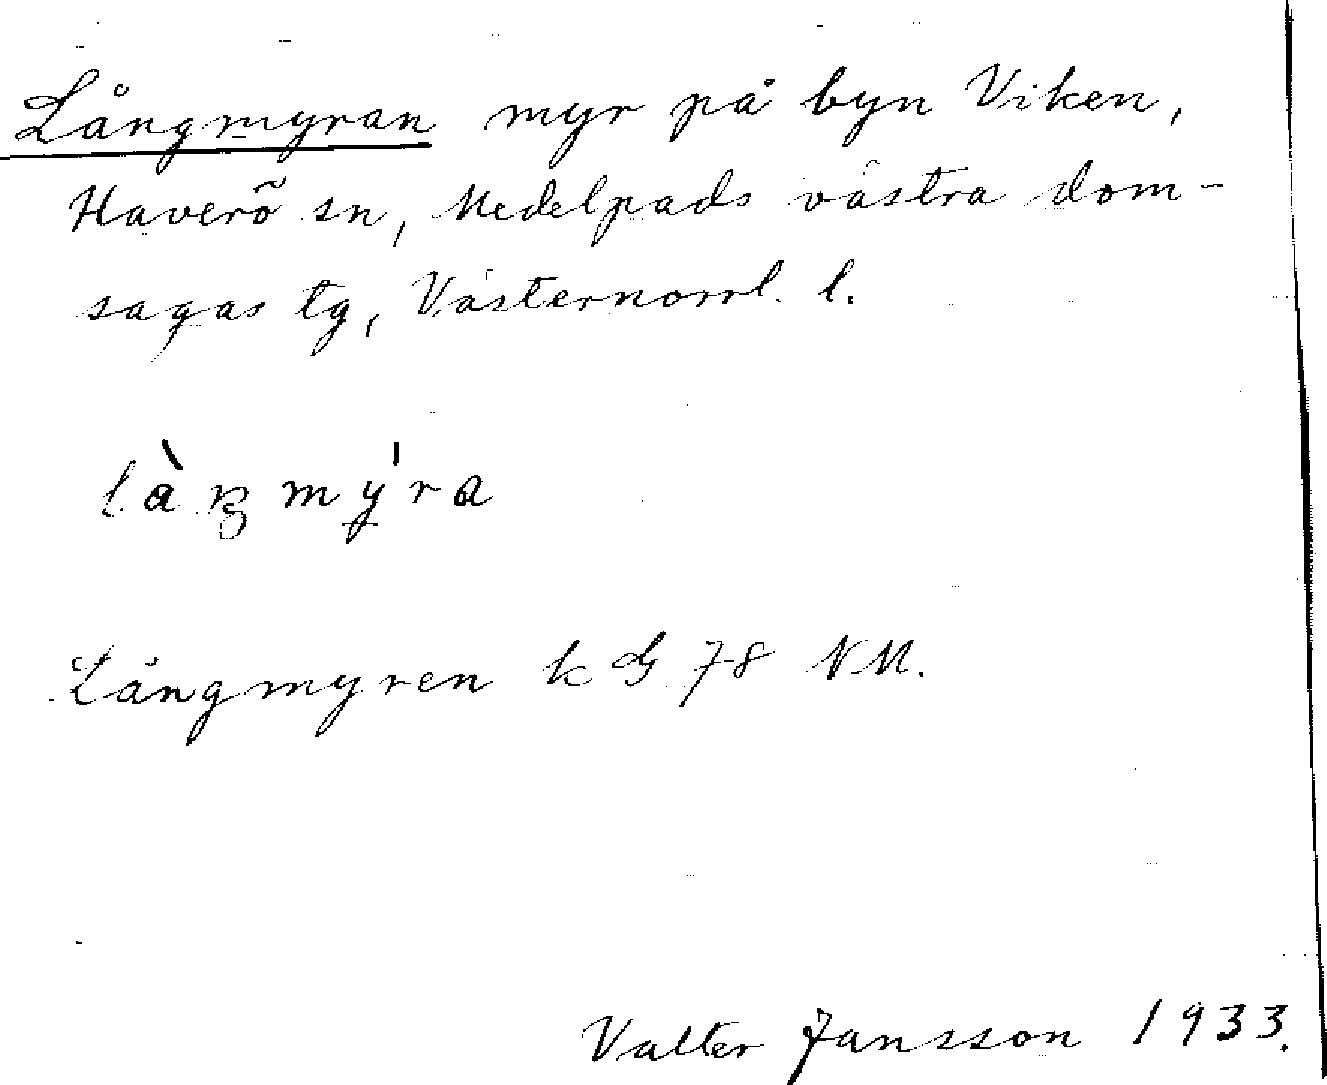 Långmyran myr på byn Viken,
Haverö sn, Medelpads västra dom-
sagas tg, Västernorrl. l.
làŋmýra
Långmyren k G 78 NM.
Valter Jansson 1933.